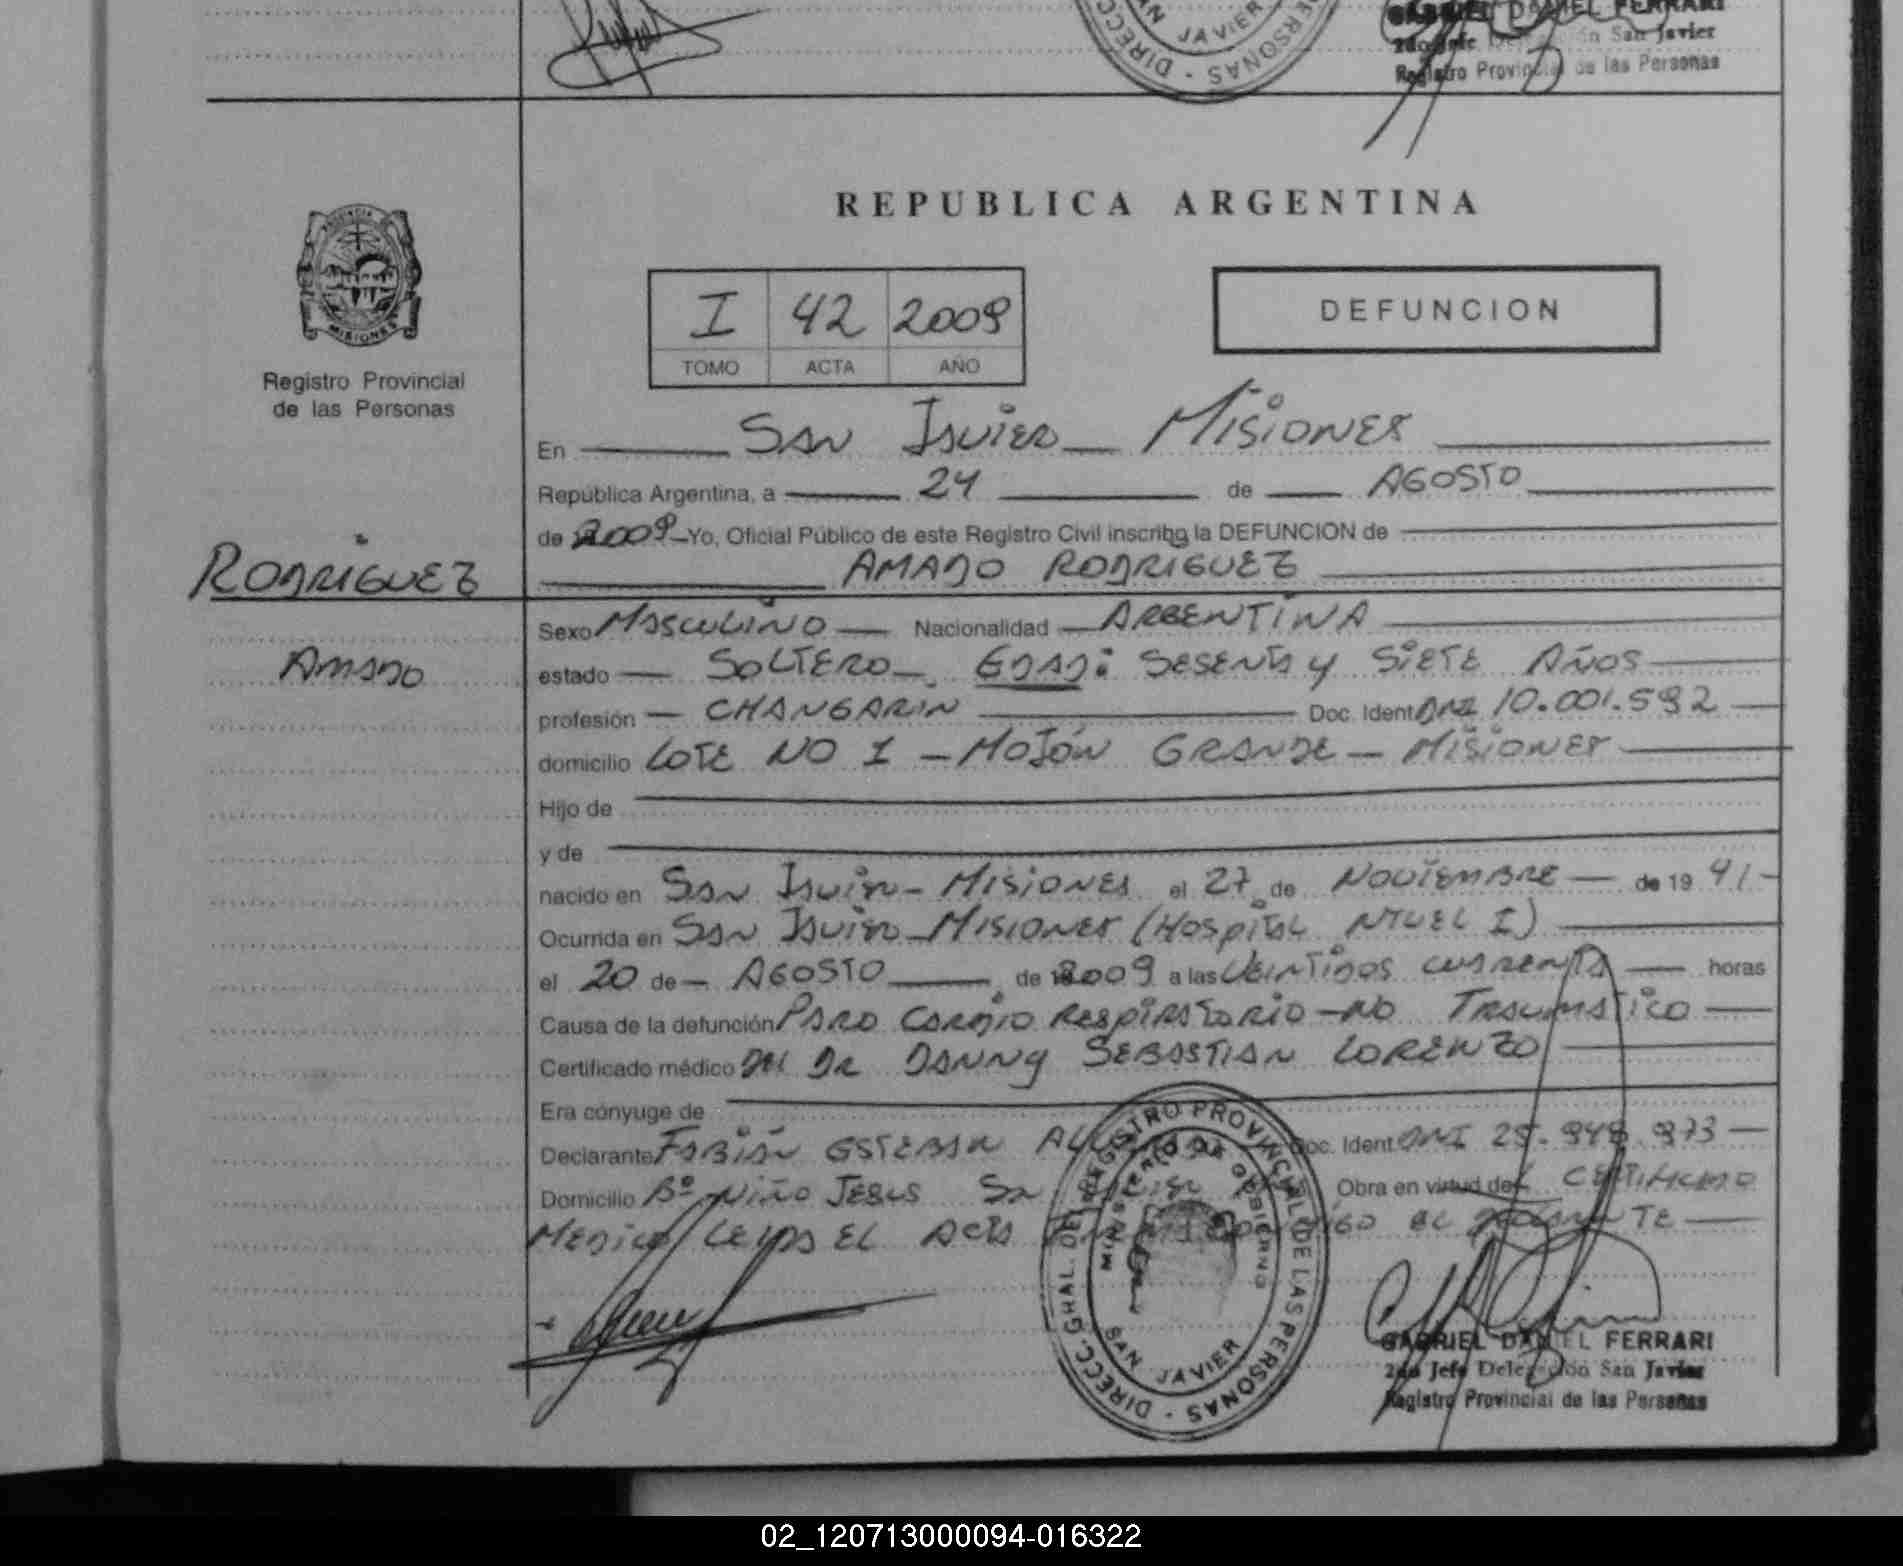 GABRIEL DANIEL FERRARI
2do Jefe Delegación San Javier
Registro Provincial de las Personas
SAN JAVIER
DIRECC. PERSONAS
REPUBLICA ARGENTINA
PROVINCIA DE MISIONES
Registro Provincial
de las Personas
I 42 2009
TOMO ACTA AÑO
DEFUNCION
En San Javier Misiones
República Argentina, a 24 de AGOSTO
de 2009 Yo, Oficial Público de este Registro Civil inscribo la DEFUNCION de
RODRIGUEZ
AMADO RODRIGUEZ
AMADO
Sexo MASCULINO Nacionalidad ARGENTINA
estado SOLTERO EDAD: SESENTA y SIETE AÑOS
profesión CHANGARIN Doc. Ident. DNI 10.001.592
domicilio LOTE NO I - MOJÓN GRANDE - MISIONES
Hijo de
y de
nacido en San Javier - MISIONES el 27 de NOVIEMBRE de 19 41 -
Ocurrida en San Javier - MISIONES (Hospital NIVEL I)
el 20 de AGOSTO de 2009 a las VEINTIDOS CUARENTA horas
Causa de la defunción PARO CARDIO RESPIRATORIO - NO TRAUMATICO
Certificado médico DEL DR DANNY SEBASTIAN LORENZO
Era cónyuge de
Declarante FABIÁN ESTEBAN Doc. Ident. DNI 25.949.973
Domicilio Bº NIÑO JESUS San Javier Obra en virtud del CERTIFICADO
MEDICO LEIDA EL ACTA EL DECLARANTE
DIRECC. GRAL. DEL REGISTRO PROVINCIAL DE LAS PERSONAS
MINISTERIO DE GOBIERNO
SAN JAVIER
GABRIEL DANIEL FERRARI
2do Jefe Delegación San Javier
Registro Provincial de las Personas
02_120713000094-016322